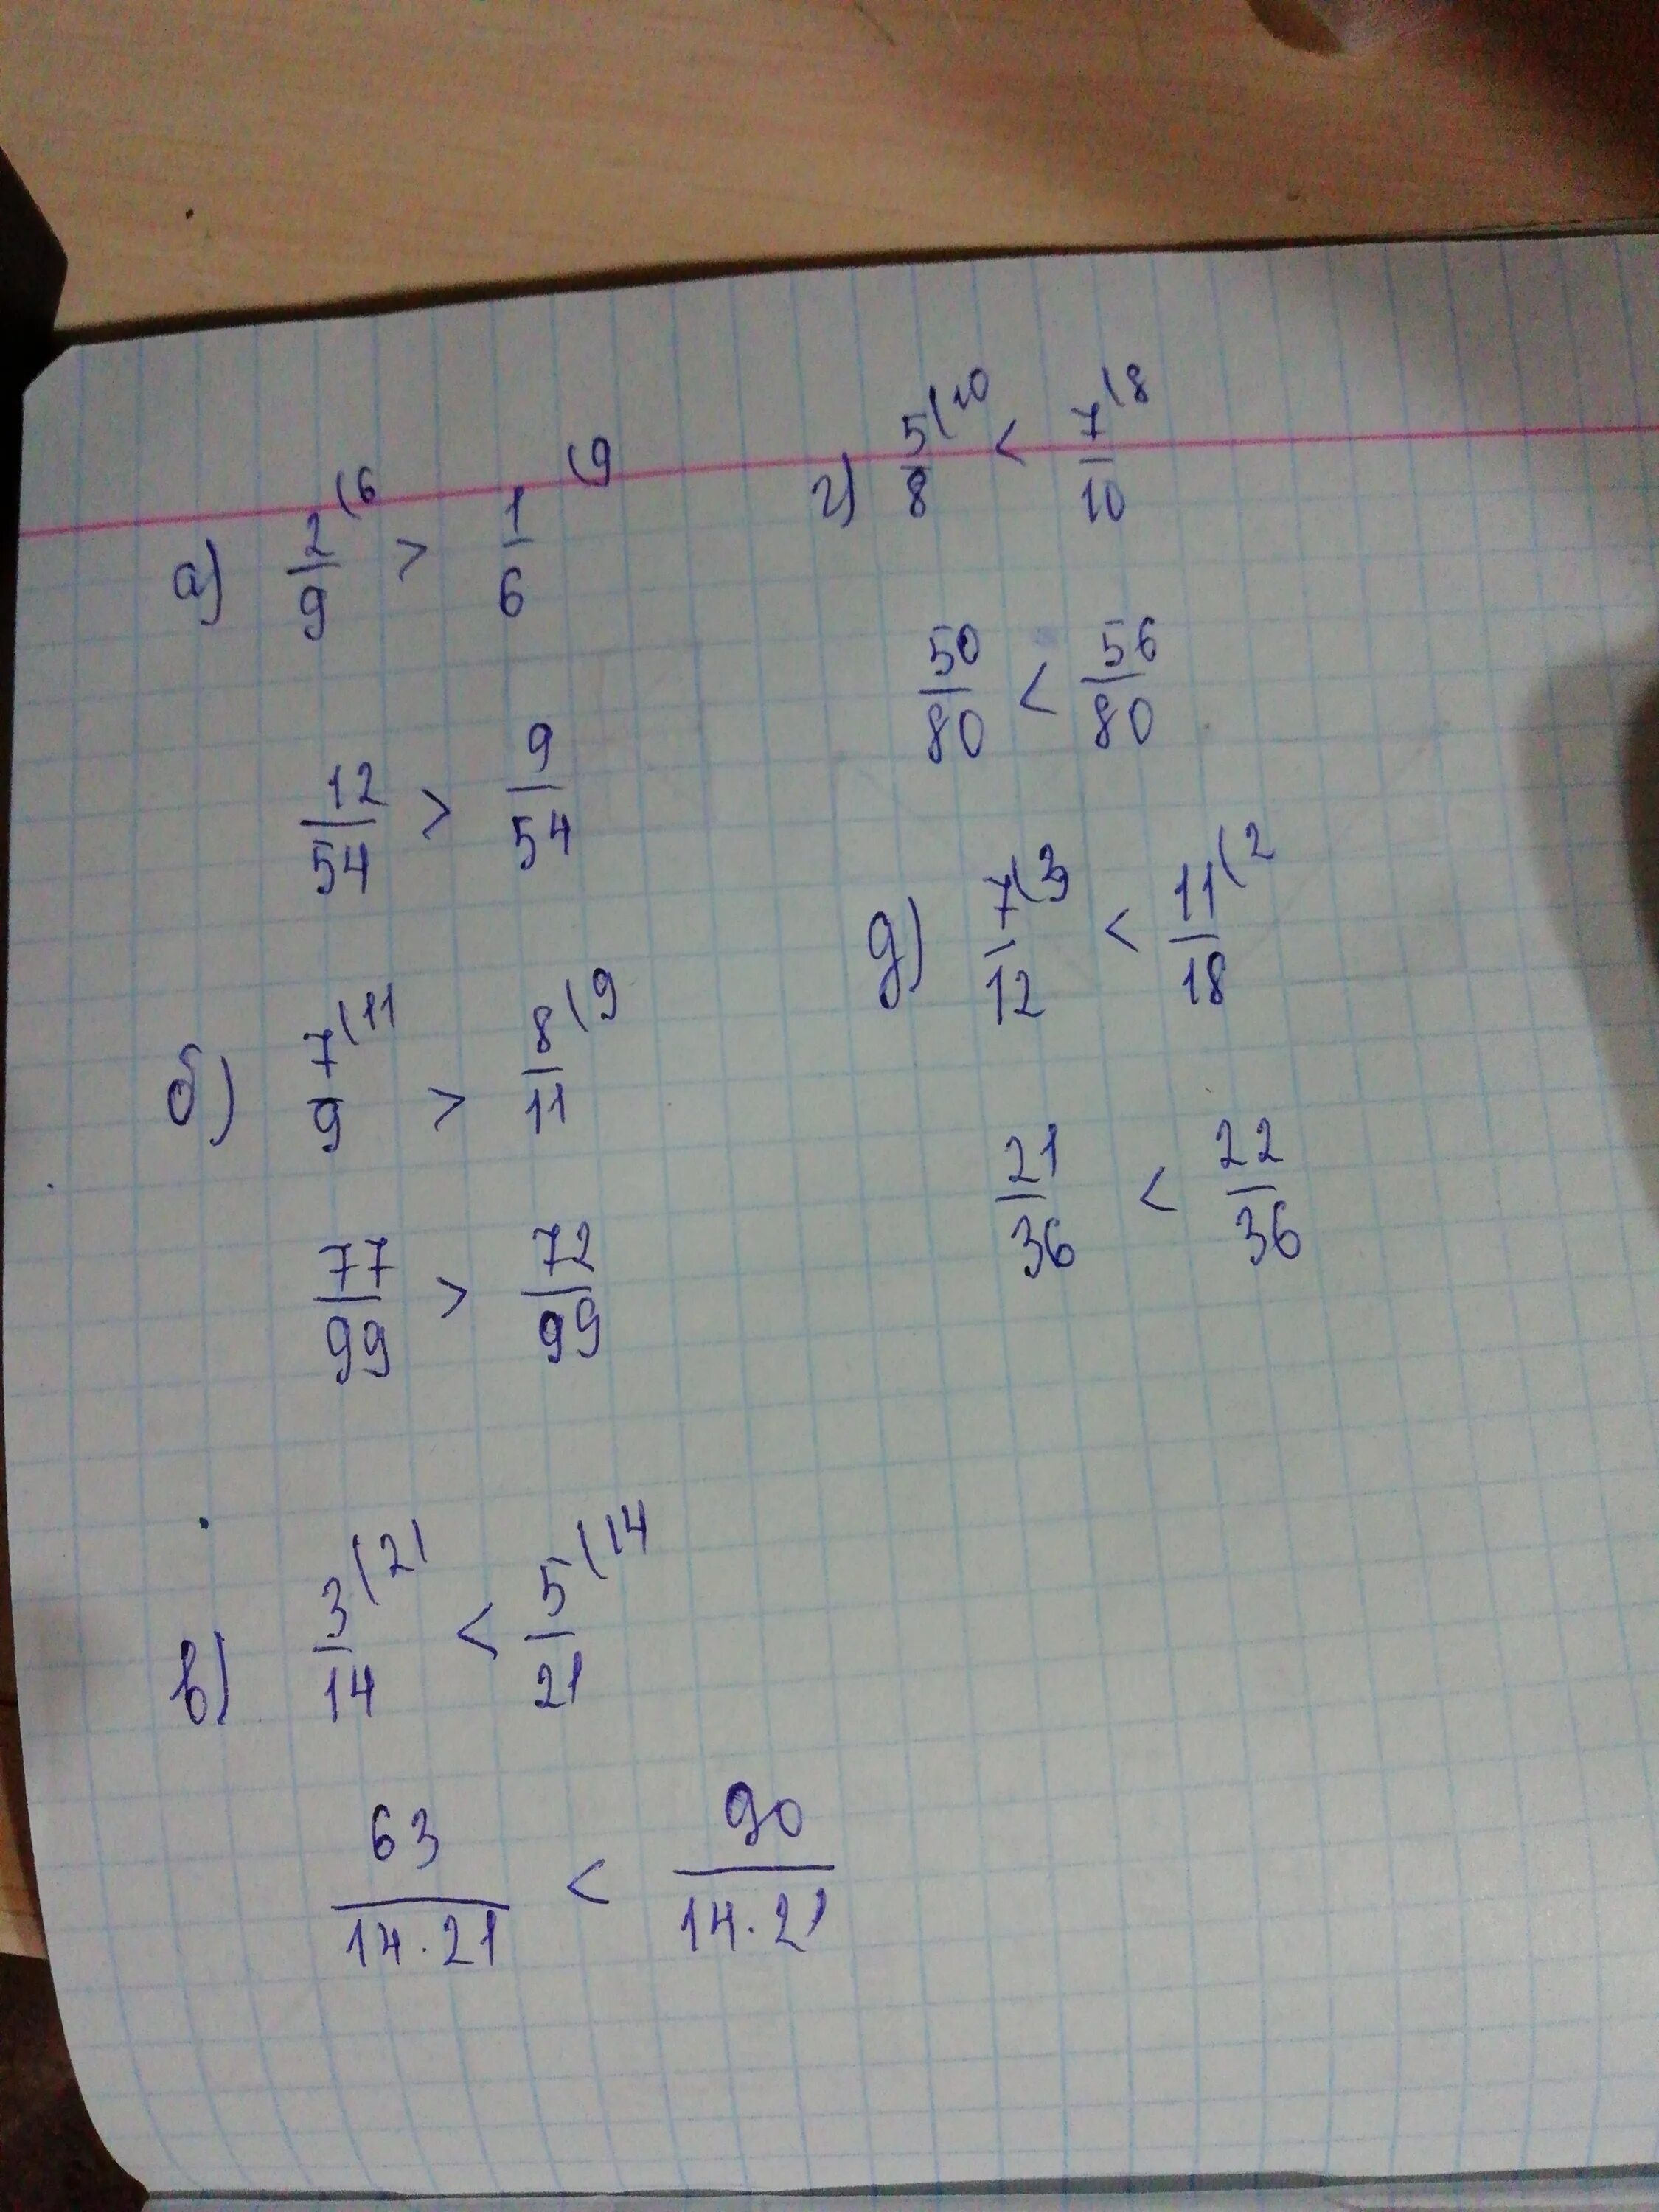 а) 2/9 (6 > 1/6 (9
12/54 > 9/54
б) 7/9 (11 > 8/11 (9
77/99 > 72/99
в) 3/14 (21 < 5/21 (14
63/14·21 < 90/14·21
г) 5/8 (10 < 7/10 (8
50/80 < 56/80
д) 7/12 (3 < 11/18 (2
21/36 < 22/36